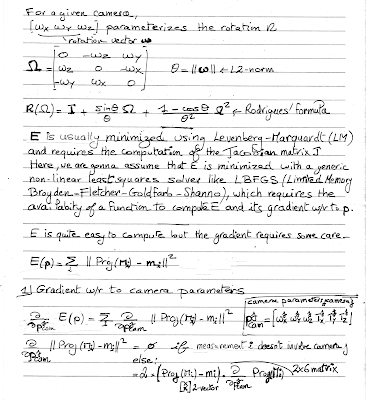 For a given camera,
[ωx ωy ωz] parameterizes the rotation R
rotation vector ω
Ω = [0 -ωz ωy
ωz 0 -ωx
-ωy ωx 0] θ = ||ω|| ← L2-norm
R(Ω) = I + sinθ/θ Ω + 1-cosθ/θ² Ω² ← Rodrigues' formula
E is usually minimized using Levenberg-Marquardt (LM)
and requires the computation of the Jacobian matrix J
Here, we are gonna assume that E is minimized with a generic
non-linear least squares solver like LBFGS (Limited Memory
Broyden-Fletcher-Goldfarb-Shanno), which requires the
availability of a function to compute E and its gradient w/r to p.
E is quite easy to compute but the gradient requires some care.
E(p) = Σi || Proj(Mi) - mi ||²
1) Gradient w/r to camera parameters
camera parameters, camera j
∂/∂pʲcam E(p) = Σi ∂/∂pʲcam || Proj(Mi) - mi ||²
∂/∂pʲcam || Proj(Mi) - mi ||² = 0 if measurement i doesn't involve camera j
else:
= 2 × (Proj(Mi) - mi) . ∂/∂pʲcam Proj(Mi) 2x6 matrix
2-vector